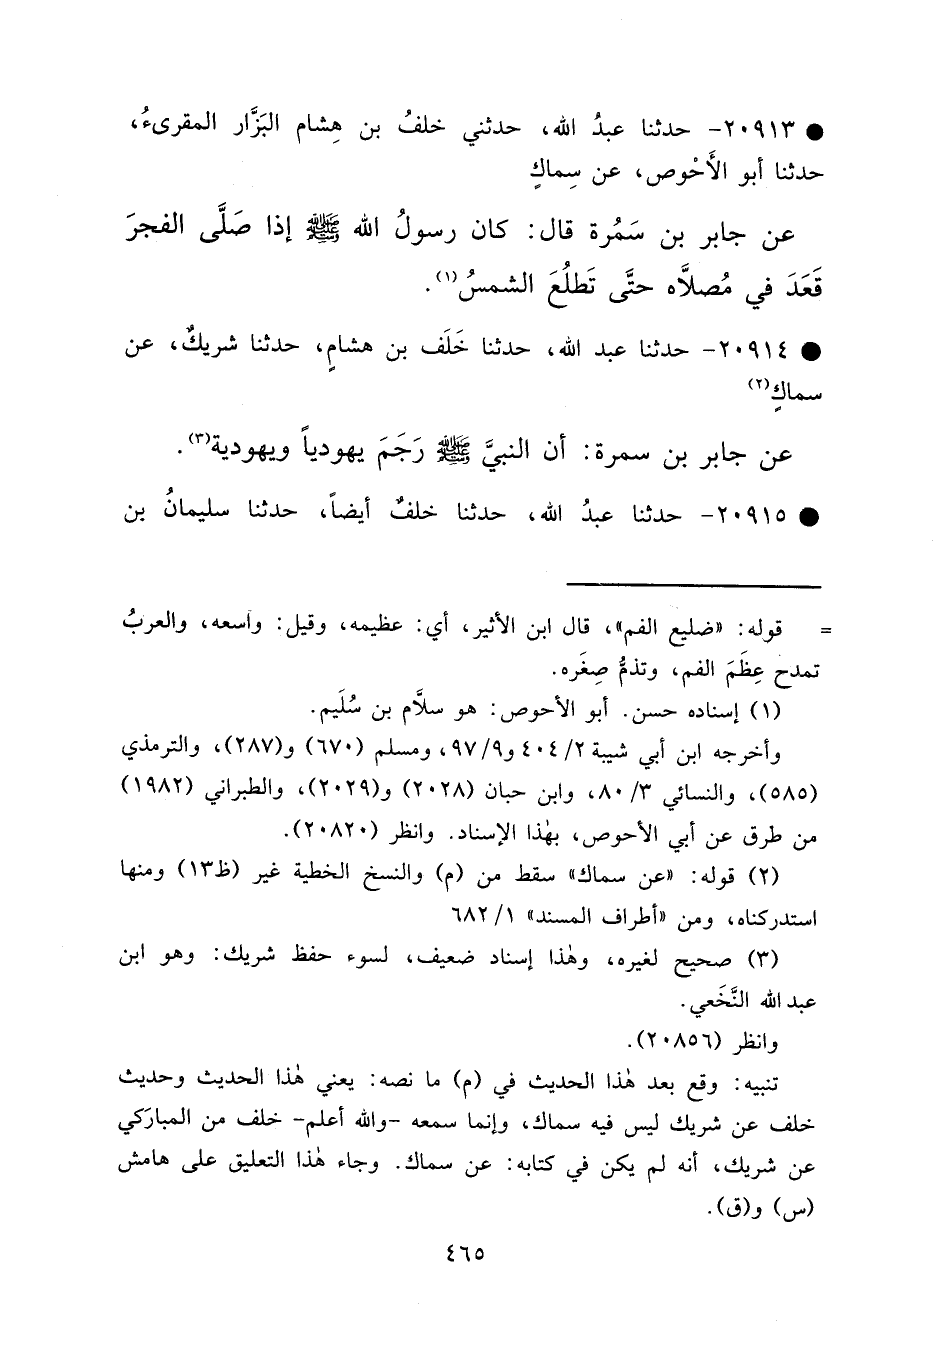 ● ٢٠٩١٣- حدثنا عبدُ الله، حدثني خلفُ بن هِشام البَزَّار المقرىءُ،
حدثنا أبو الأَحْوص، عن سِماكٍ
عن جابر بن سَمُرة قال: كان رسولُ الله ﷺ إذا صَلَّى الفجرَ
قَعَدَ في مُصلاَّه حتَّى تَطلُعَ الشمسُ(١).
● ٢٠٩١٤- حدثنا عبد الله، حدثنا خَلَف بن هشامٍ، حدثنا شريكٌ، عن
سماكٍ(٢)
عن جابر بن سمرة: أن النبيَّ ﷺ رَجَمَ يهودياً ويهودية(٣).
● ٢٠٩١٥- حدثنا عبدُ الله، حدثنا خلفٌ أيضاً، حدثنا سليمانُ بن
= قوله: «ضليع الفم»، قال ابن الأثير، أي: عظيمه، وقيل: واسعه، والعربُ
تمدح عِظَمَ الفم، وتذمُّ صِغَره.
(١) إسناده حسن. أبو الأحوص: هو سلاَّم بن سُلَيم.
وأخرجه ابن أبي شيبة ٤٠٤/٢ و٩٧/٩، ومسلم (٦٧٠) و(٢٨٧)، والترمذي
(٥٨٥)، والنسائي ٨٠/٣، وابن حبان (٢٠٢٨) و(٢٠٢٩)، والطبراني (١٩٨٢)
من طرق عن أبي الأحوص، بهٰذا الإسناد. وانظر (٢٠٨٢٠).
(٢) قوله: «عن سماك» سقط من (م) والنسخ الخطية غير (ظ١٣) ومنها
استدركناه، ومن «أطراف المسند» ٦٨٢/١
(٣) صحيح لغيره، وهٰذا إسناد ضعيف، لسوء حفظ شريك: وهو ابن
عبد الله النَّخَعي.
وانظر (٢٠٨٥٦).
تنبيه: وقع بعد هٰذا الحديث في (م) ما نصه: يعني هٰذا الحديث وحديث
خلف عن شريك ليس فيه سماك، وإنما سمعه -والله أعلم- خلف من المباركي
عن شريك، أنه لم يكن في كتابه: عن سماك. وجاء هٰذا التعليق على هامش
(س) و(ق).
٤٦٥